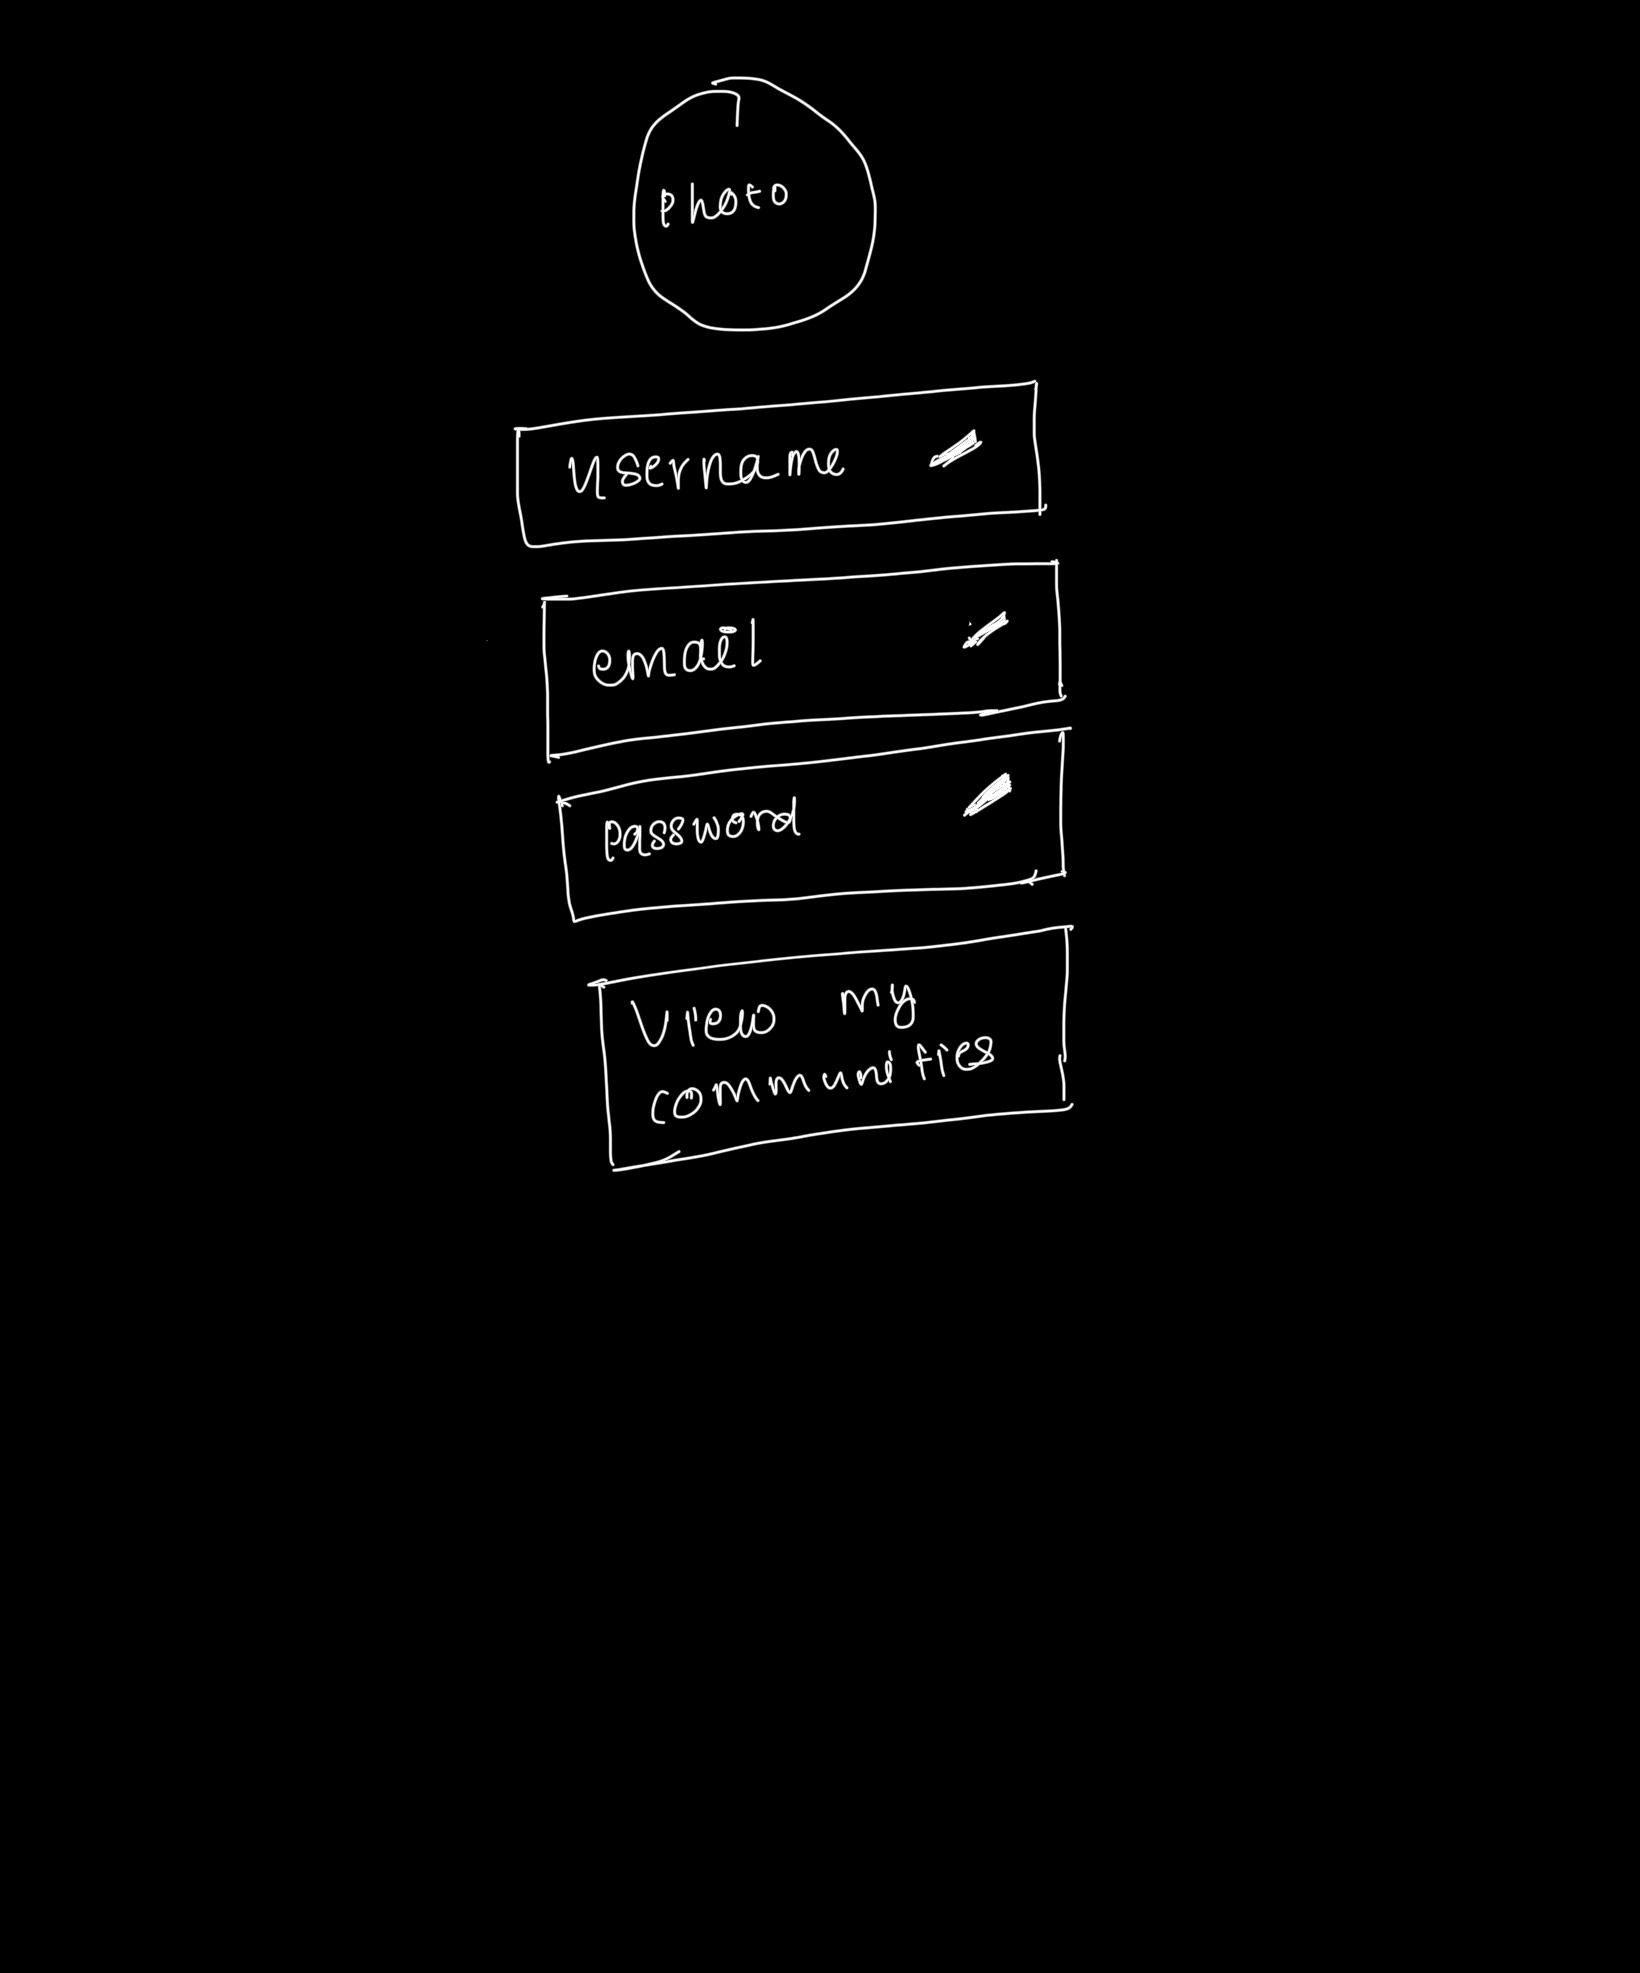 photo
username
email
password
View my
communities